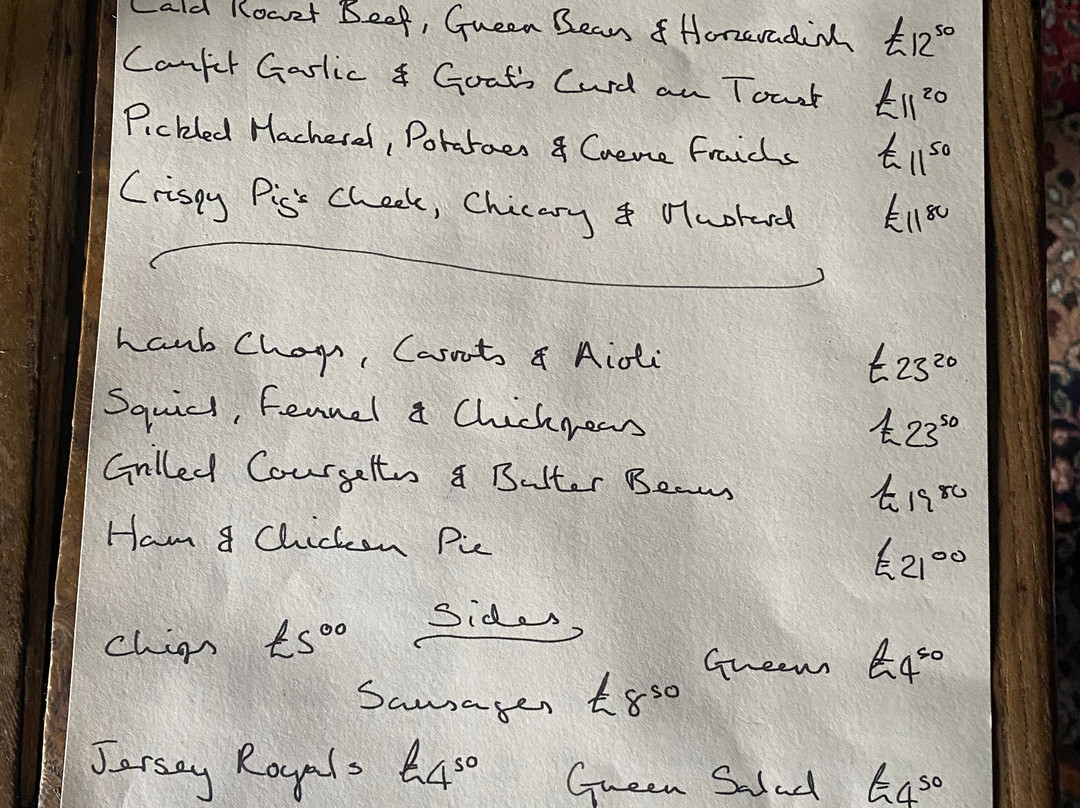 Cold Roast Beef, Green Beans & Horseradish £12.50
Confit Garlic & Goat's Curd on Toast £11.20
Pickled Mackerel, Potatoes & Creme Fraiche £11.50
Crispy Pig's Cheek, Chicory & Mustard £11.80
Lamb Chops, Carrots & Aioli £23.20
Squid, Fennel & Chickpeas £23.50
Grilled Courgettes & Butter Beans £19.80
Ham & Chicken Pie £21.00
Sides
Chips £5.00
Greens £4.50
Sausages £8.50
Jersey Royals £4.50
Green Salad £4.50